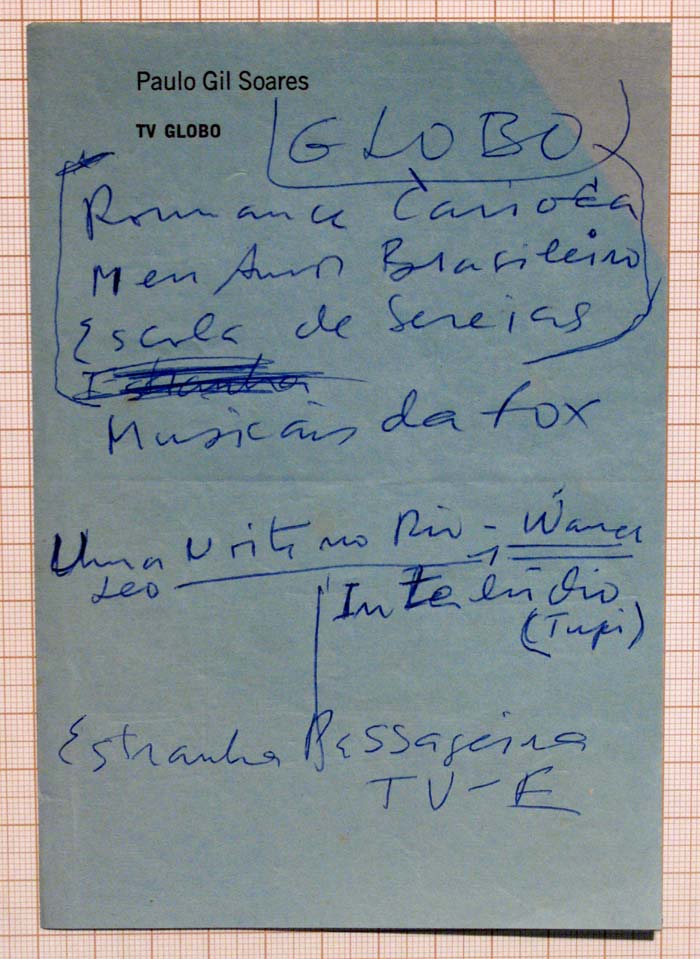 Paulo Gil Soares
TV GLOBO
GLOBO
Romance Carioca
Meu Amor Brasileiro
Escola de Sereias
Estranha
Musicais da Fox
Uma Noite no Rio -
Leo
Interlúdio
(Tupi)
Estranha Passageira
TV-E